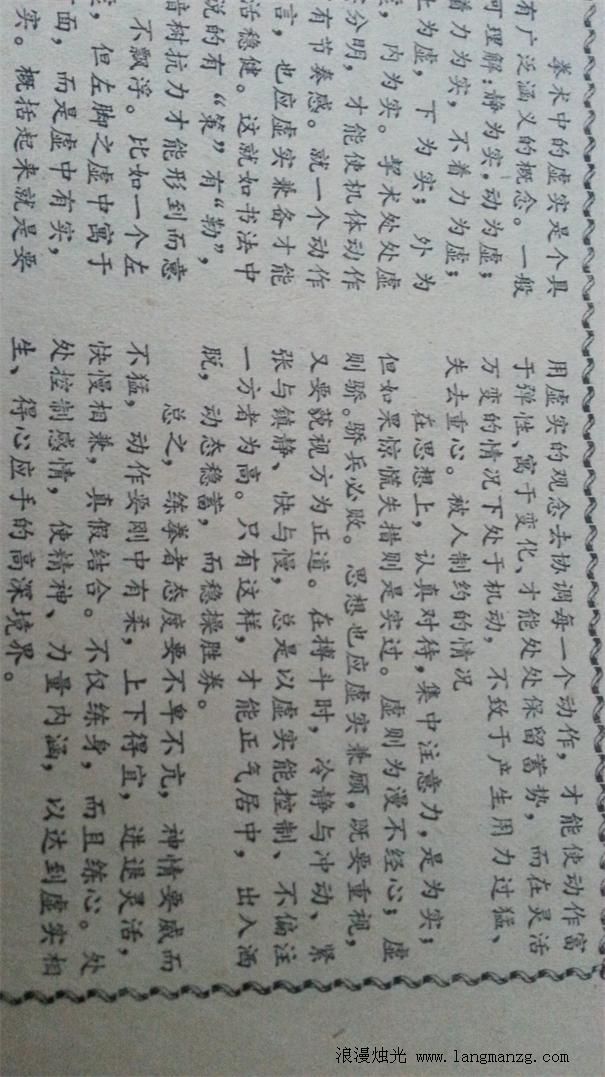 拳术中的虚实是个具
有广泛涵义的概念。一般
可理解:静为实,动为虚;
着力为实,不着力为虚;
上为虚,下为实;外为
,内为实。拳术处处虚
分明,才能使机体动作
有节奏感。就一个动作
言,也应虚实兼备才能
活稳健。这就如书法中
说的有“策”有“勒”,
树抗力才能形到而意
不飘浮。比如一个左
,但左脚之虚中寓于
面,而是虚中有实,
实。概括起来就是要
用虚实的观念去协调每一个动作,才能使动作富
于弹性、寓于变化、才能处处保留蓄势,而在灵活
万变的情况下处于机动,不致于产生用力过猛、
失去重心。被人制约的情况
在思想上,认真对待,集中注意力,是为实;
但如果惊慌失措则是实过。虚则为漫不经心;虚
则骄。骄兵必败。思想也应虚实兼顾,既要重视,
又要藐视方为正道。在搏斗时,冷静与冲动、紧
张与镇静、快与慢,总是以虚实能控制、不偏注
一方者为高。只有这样,才能正气居中,出入洒
脱,动态稳蓄,而稳操胜券。
总之,练拳者态度要不卑不亢,神情要威而
不猛,动作要刚中有柔,上下得宜,进退灵活,
快慢相兼,真假结合。不仅练身,而且练心。处
处控制感情,使精神、力量内涵,以达到虚实相
生、得心应手的高深境界。
浪漫烛光 www.langmanzg.com